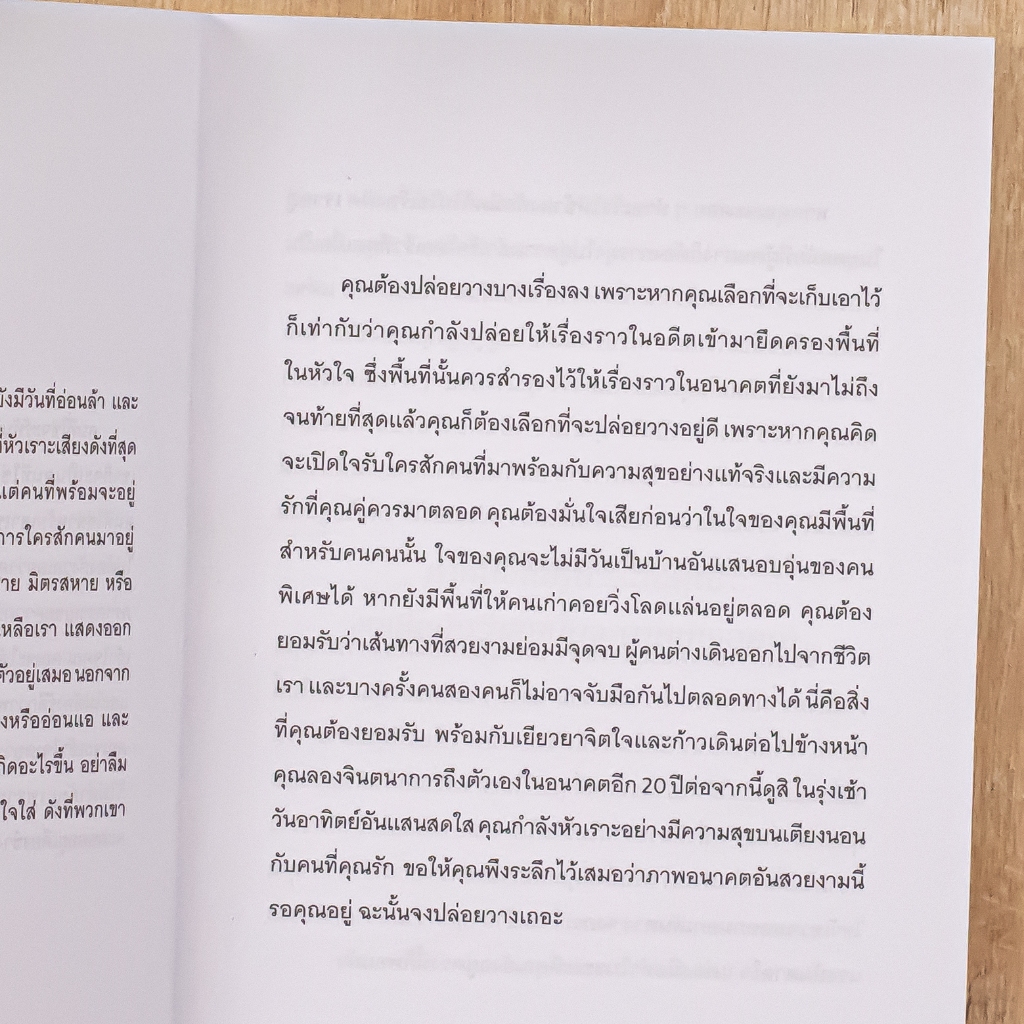 ยังมีวันที่อ่อนล้า และ
ที่หัวเราะเสียงดังที่สุด
แต่คนที่พร้อมจะอยู่
การใครสักคนมาอยู่
มิตรสหาย หรือ
เหลือเรา แสดงออก
ตัวอยู่เสมอ นอกจาก
หรืออ่อนแอ และ
กิดอะไรขึ้น อย่าลืม
ใจใส่ ดังที่พวกเขา
คุณต้องปล่อยวางบางเรื่องลง เพราะหากคุณเลือกที่จะเก็บเอาไว้
ก็เท่ากับว่าคุณกำลังปล่อยให้เรื่องราวในอดีตเข้ามายึดครองพื้นที่
ในหัวใจ ซึ่งพื้นที่นั้นควรสำรองไว้ให้เรื่องราวในอนาคตที่ยังมาไม่ถึง
จนท้ายที่สุดแล้วคุณก็ต้องเลือกที่จะปล่อยวางอยู่ดี เพราะหากคุณคิด
จะเปิดใจรับใครสักคนที่มาพร้อมกับความสุขอย่างแท้จริงและมีความ
รักที่คุณคู่ควรมาตลอด คุณต้องมั่นใจเสียก่อนว่าในใจของคุณมีพื้นที่
สำหรับคนคนนั้น ใจของคุณจะไม่มีวันเป็นบ้านอันแสนอบอุ่นของคน
พิเศษได้ หากยังมีพื้นที่ให้คนเก่าคอยวิ่งโลดแล่นอยู่ตลอด คุณต้อง
ยอมรับว่าเส้นทางที่สวยงามย่อมมีจุดจบ ผู้คนต่างเดินออกไปจากชีวิต
เรา และบางครั้งคนสองคนก็ไม่อาจจับมือกันไปตลอดทางได้ นี่คือสิ่ง
ที่คุณต้องยอมรับ พร้อมกับเยียวยาจิตใจและก้าวเดินต่อไปข้างหน้า
คุณลองจินตนาการถึงตัวเองในอนาคตอีก 20 ปีต่อจากนี้ดูสิ ในรุ่งเช้า
วันอาทิตย์อันแสนสดใส คุณกำลังหัวเราะอย่างมีความสุขบนเตียงนอน
กับคนที่คุณรัก ขอให้คุณพึงระลึกไว้เสมอว่าภาพอนาคตอันสวยงามนี้
รอคุณอยู่ ฉะนั้นจงปล่อยวางเถอะ